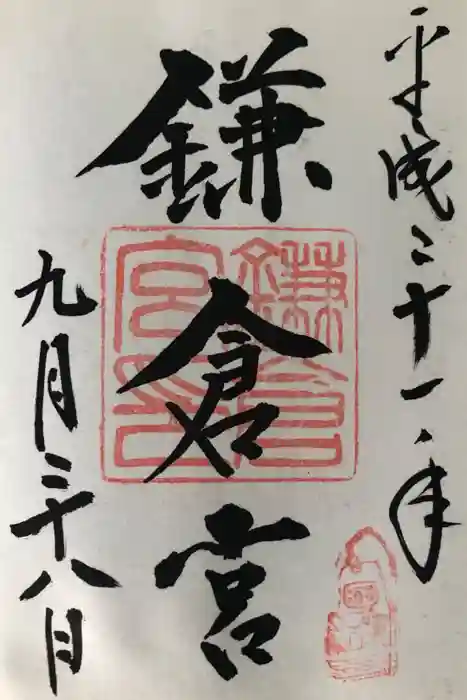 平成二十一年
鎌倉宮
鎌倉
宮印
九月二十八日